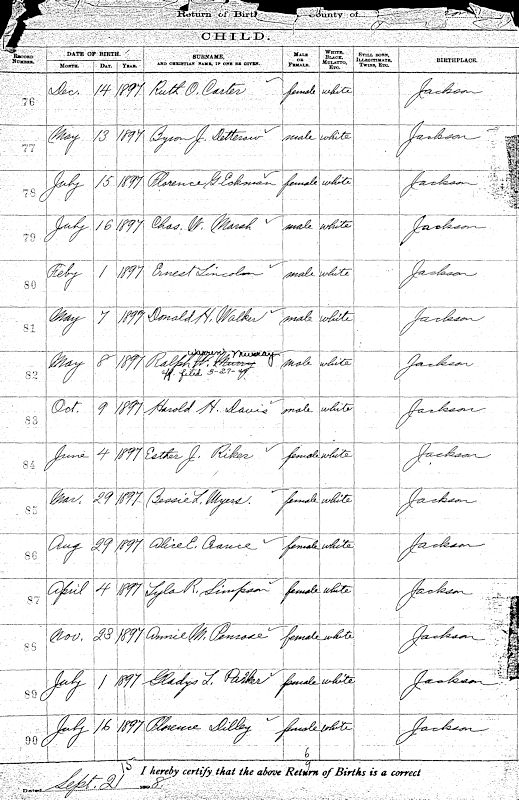 Return of Births County of
CHILD.
RECORD NUMBER. DATE OF BIRTH. MONTH. DAY. YEAR. SURNAME, AND CHRISTIAN NAME, IF ONE BE GIVEN. MALE OR FEMALE. WHITE, BLACK, MULATTO, ETC. STILL BORN, ILLEGITIMATE, TWINS, ETC. BIRTHPLACE.
76 Dec. 14 1897 Ruth O. Carter female white Jackson
77 May 13 1897 Byron J. male white Jackson
78 July 15 1897 Florence G. Eckman female white Jackson
79 July 16 1897 Chas. W. Marsh male white Jackson
80 Feby 1 1897 Ernest Lincoln male white Jackson
81 May 7 1897 Donald H. Walker male white Jackson
Warren Murray
82 May 8 1897 Ralph W. male white Jackson
filed 3-27-
83 Oct. 9 1897 Harold H. Davis male white Jackson
84 June 4 1897 Esther J. Riker female white Jackson
85 Mar. 29 1897 Bessie L. Myers. female white Jackson
86 Aug 29 1897 Alice C. Crance female white Jackson
87 April 4 1897 Lyla R. Simpson female white Jackson
88 Nov. 23 1897 Annie M. Penrose female white Jackson
89 July 1 1897 Gladys L. Parker female white Jackson
90 July 16 1897 Florence Dilley female white Jackson
I hereby certify that the above Return of Births is a correct
Dated Sept. 2